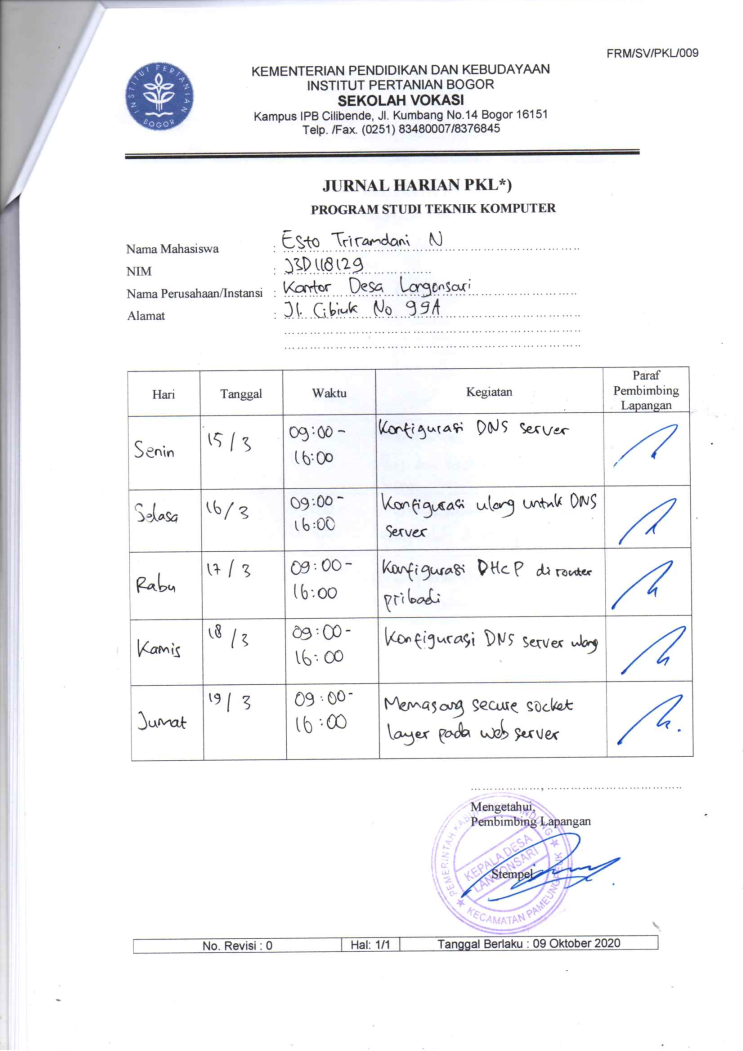 FRM/SV/PKL/009
INSTITUT PERTANIAN
BOGOR
KEMENTERIAN PENDIDIKAN DAN KEBUDAYAAN
INSTITUT PERTANIAN BOGOR
SEKOLAH VOKASI
Kampus IPB Cilibende, Jl. Kumbang No.14 Bogor 16151
Telp. /Fax. (0251) 83480007/8376845
JURNAL HARIAN PKL*)
PROGRAM STUDI TEKNIK KOMPUTER
Nama Mahasiswa : Esto Triramdani N
NIM : J3D118129
Nama Perusahaan/Instansi : Kantor Desa Langensari
Alamat : Jl. Cibiuk No 99A
Hari Tanggal Waktu Kegiatan Paraf
Pembimbing
Lapangan
Senin 15/3 09:00 - Konfigurasi DNS server
16:00
Selasa 16/3 09:00 - Konfigurasi ulang untuk DNS
16:00 server
Rabu 17/3 09:00 - Konfigurasi DHCP di router
16:00 pribadi
Kamis 18/3 09:00 - Konfigurasi DNS server ulang
16:00
Jumat 19/3 09:00 - Memasang secure socket
16:00 layer pada web server
Mengetahui,
Pembimbing Lapangan
Stempel
KEPALA DESA
LANGONSARI
KECAMATAN PAMEUNGPEUK
No. Revisi : 0 Hal: 1/1 Tanggal Berlaku : 09 Oktober 2020